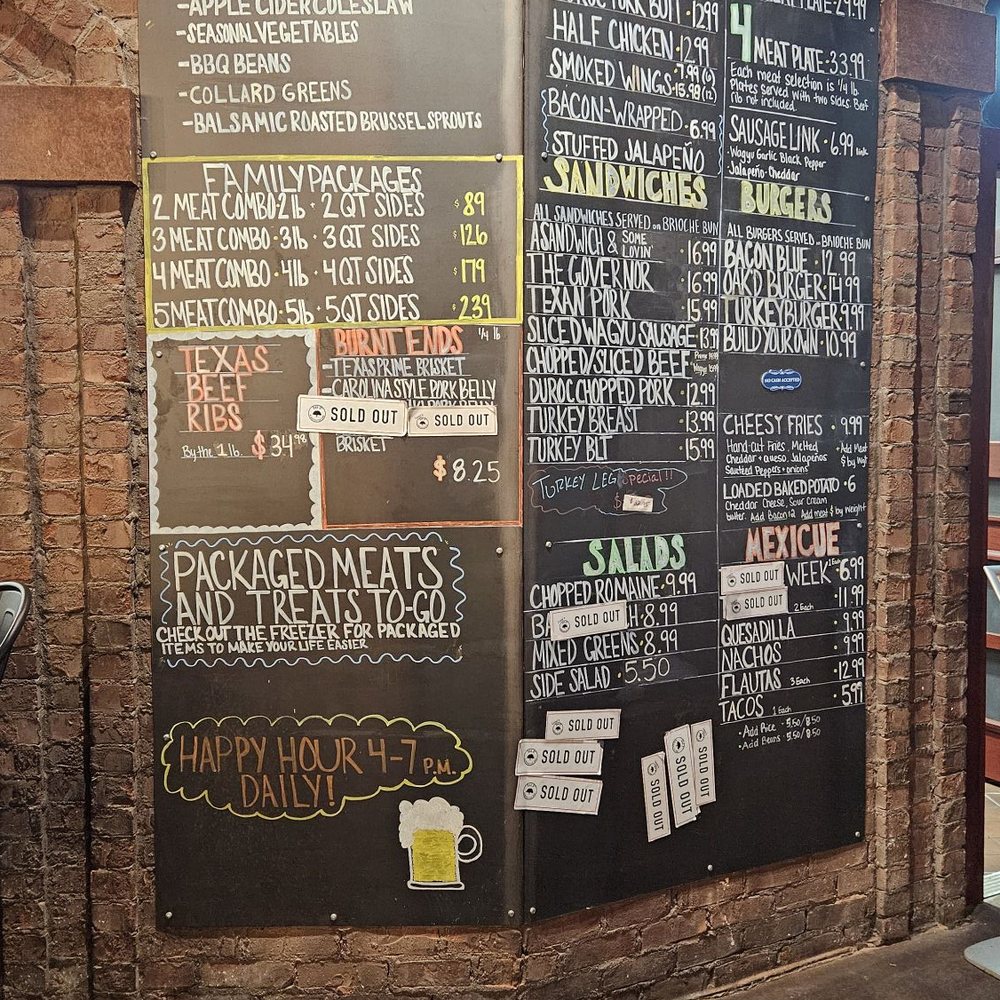 -APPLE CIDER COLESLAW
-SEASONAL VEGETABLES
-BBQ BEANS
-COLLARD GREENS
-BALSAMIC ROASTED BRUSSEL SPROUTS
FAMILY PACKAGES
2 MEAT COMBO·2lb · 2 QT SIDES $89
3 MEAT COMBO·3lb · 3 QT SIDES $126
4 MEAT COMBO·4lb · 4 QT SIDES $179
5 MEAT COMBO·5lb · 5 QT SIDES $239
TEXAS
BEEF
RIBS
By the 1 lb. $34.98
BURNT ENDS 1/4 lb
-TEXAS PRIME BRISKET
-CAROLINA STYLE PORK BELLY
PORK BELLY
SOLD OUT
SOLD OUT
BRISKET
$8.25
PACKAGED MEATS
AND TREATS TO-GO
CHECK OUT THE FREEZER FOR PACKAGED
ITEMS TO MAKE YOUR LIFE EASIER
HAPPY HOUR 4-7 P.M.
DAILY!
DUROC PORK BUTT ·12.99
HALF CHICKEN ·12.99
SMOKED WINGS ·7.99 (6)
·15.98 (12)
BACON-WRAPPED ·6.99
STUFFED JALAPEÑO
SANDWICHES
ALL SANDWICHES SERVED on BRIOCHE BUN
A SANDWICH & SOME LOVIN ·16.99
THE GOVERNOR ·16.99
TEXAN PORK 15.99
SLICED WAGYU SAUSAGE·13.99
CHOPPED/SLICED BEEF·
DUROC CHOPPED PORK ·12.99
TURKEY BREAST ·13.99
TURKEY BLT ·15.99
TURKEY LEG Special!!
$
SALADS
CHOPPED ROMAINE·9.99
BA SOLD OUT H·8.99
MIXED GREENS·8.99
SIDE SALAD ·5.50
SOLD OUT
SOLD OUT
SOLD OUT
SOLD OUT
SOLD OUT
SOLD OUT
PLATE·29.99
4 MEAT PLATE·33.99
Each meat selection is 1/4 lb.
Plates served with two sides. Beef
rib not included.
SAUSAGE LINK ·6.99 link
·Wagyu Garlic Black Pepper
Jalapeño-Cheddar
BURGERS
ALL BURGERS SERVED on BRIOCHE BUN
BACON BLUE ·12.99
OAKD BURGER·14.99
TURKEY BURGER·9.99
BUILD YOUR OWN ·10.99
NO CASH ACCEPTED
CHEESY FRIES · 9.99
Hand cut Fries, Melted
Cheddar + Queso, Jalapeños
Sautted Peppers + onions
·Add Meat
$ by Wgt
LOADED BAKED POTATO ·6
Cheddar Cheese, Sour Cream
butter. Add Bacon +2 Add meat $ by Weight
MEXICUE
SOLD OUT WEEK 1 Each ·6.99
SOLD OUT 2 Each ·11.99
QUESADILLA 9.99
NACHOS ·9.99
FLAUTAS 3 Each ·12.99
TACOS 1 Each ·5.99
·Add Rice - 5.50/8.50
·Add Beans 5.50/8.50